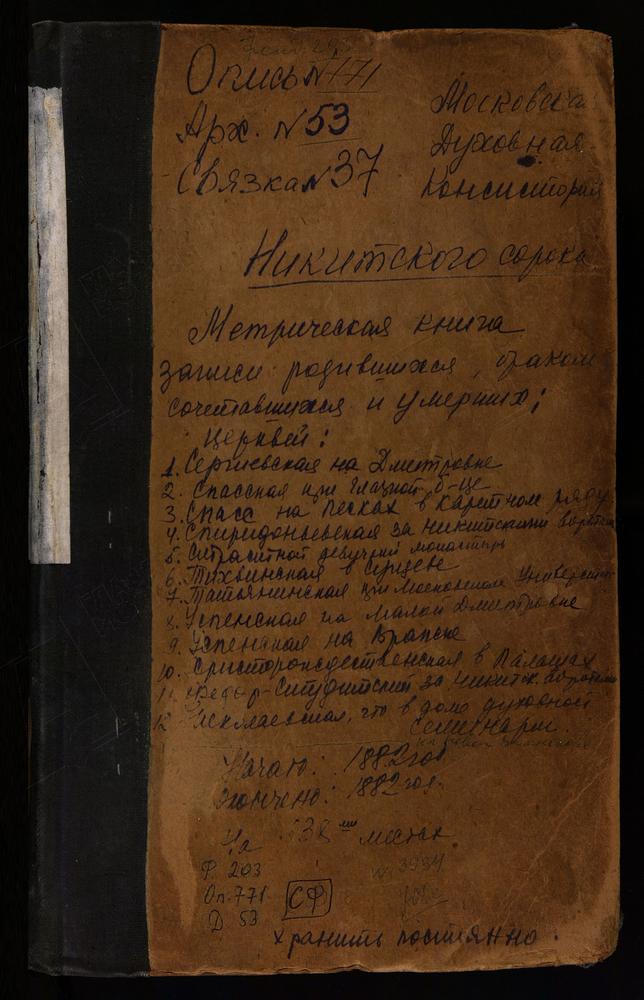 Опись N 171
Арх. N 53
Связка N 37
Московска
Духовная
Консистория
Никитского сорока
Метрическая книга
записи родившихся, браком
сочетавшихся и умерших;
церквей:
1. Сергиевская на Дмитровке
2. Спасская при Глазной б-це
3. Спаса на Песках в Каретном ряду
4. Спиридоньевская за Никитскими
5. Страстной девичий монастырь
6. Тихвинская в Сущеве
7. Татьянинская при Московском Университ
8. Успенская на Малой Дмитровке
9. Успенская на Вражке
10. Христорождественская в Палашах
11. Федор-Студитский за Никитск. воротами
12. что в доме духовной
Семинарии.
Начато: 1882 год
Окончено: 1882 год.
На 38 листах
Ф. 203
Оп. 771
Д 53
СФ
хранить постоянно.